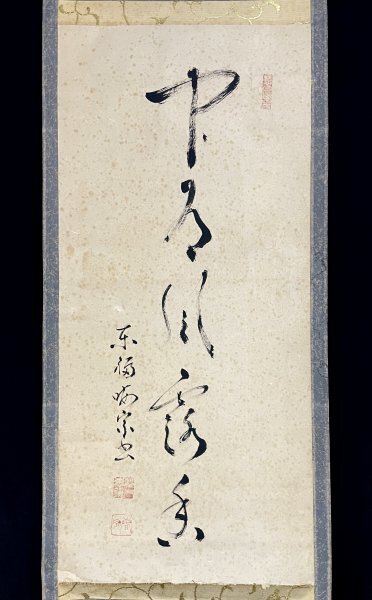 中有風露香
東福宗書